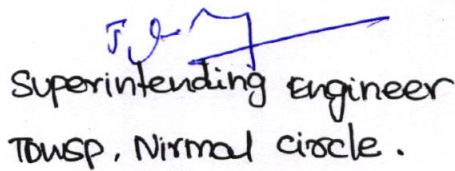 Superintending Engineer
TDWSP, Nirmal circle.